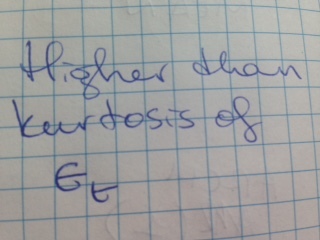 Higher than
kurtosis of
ϵₜ